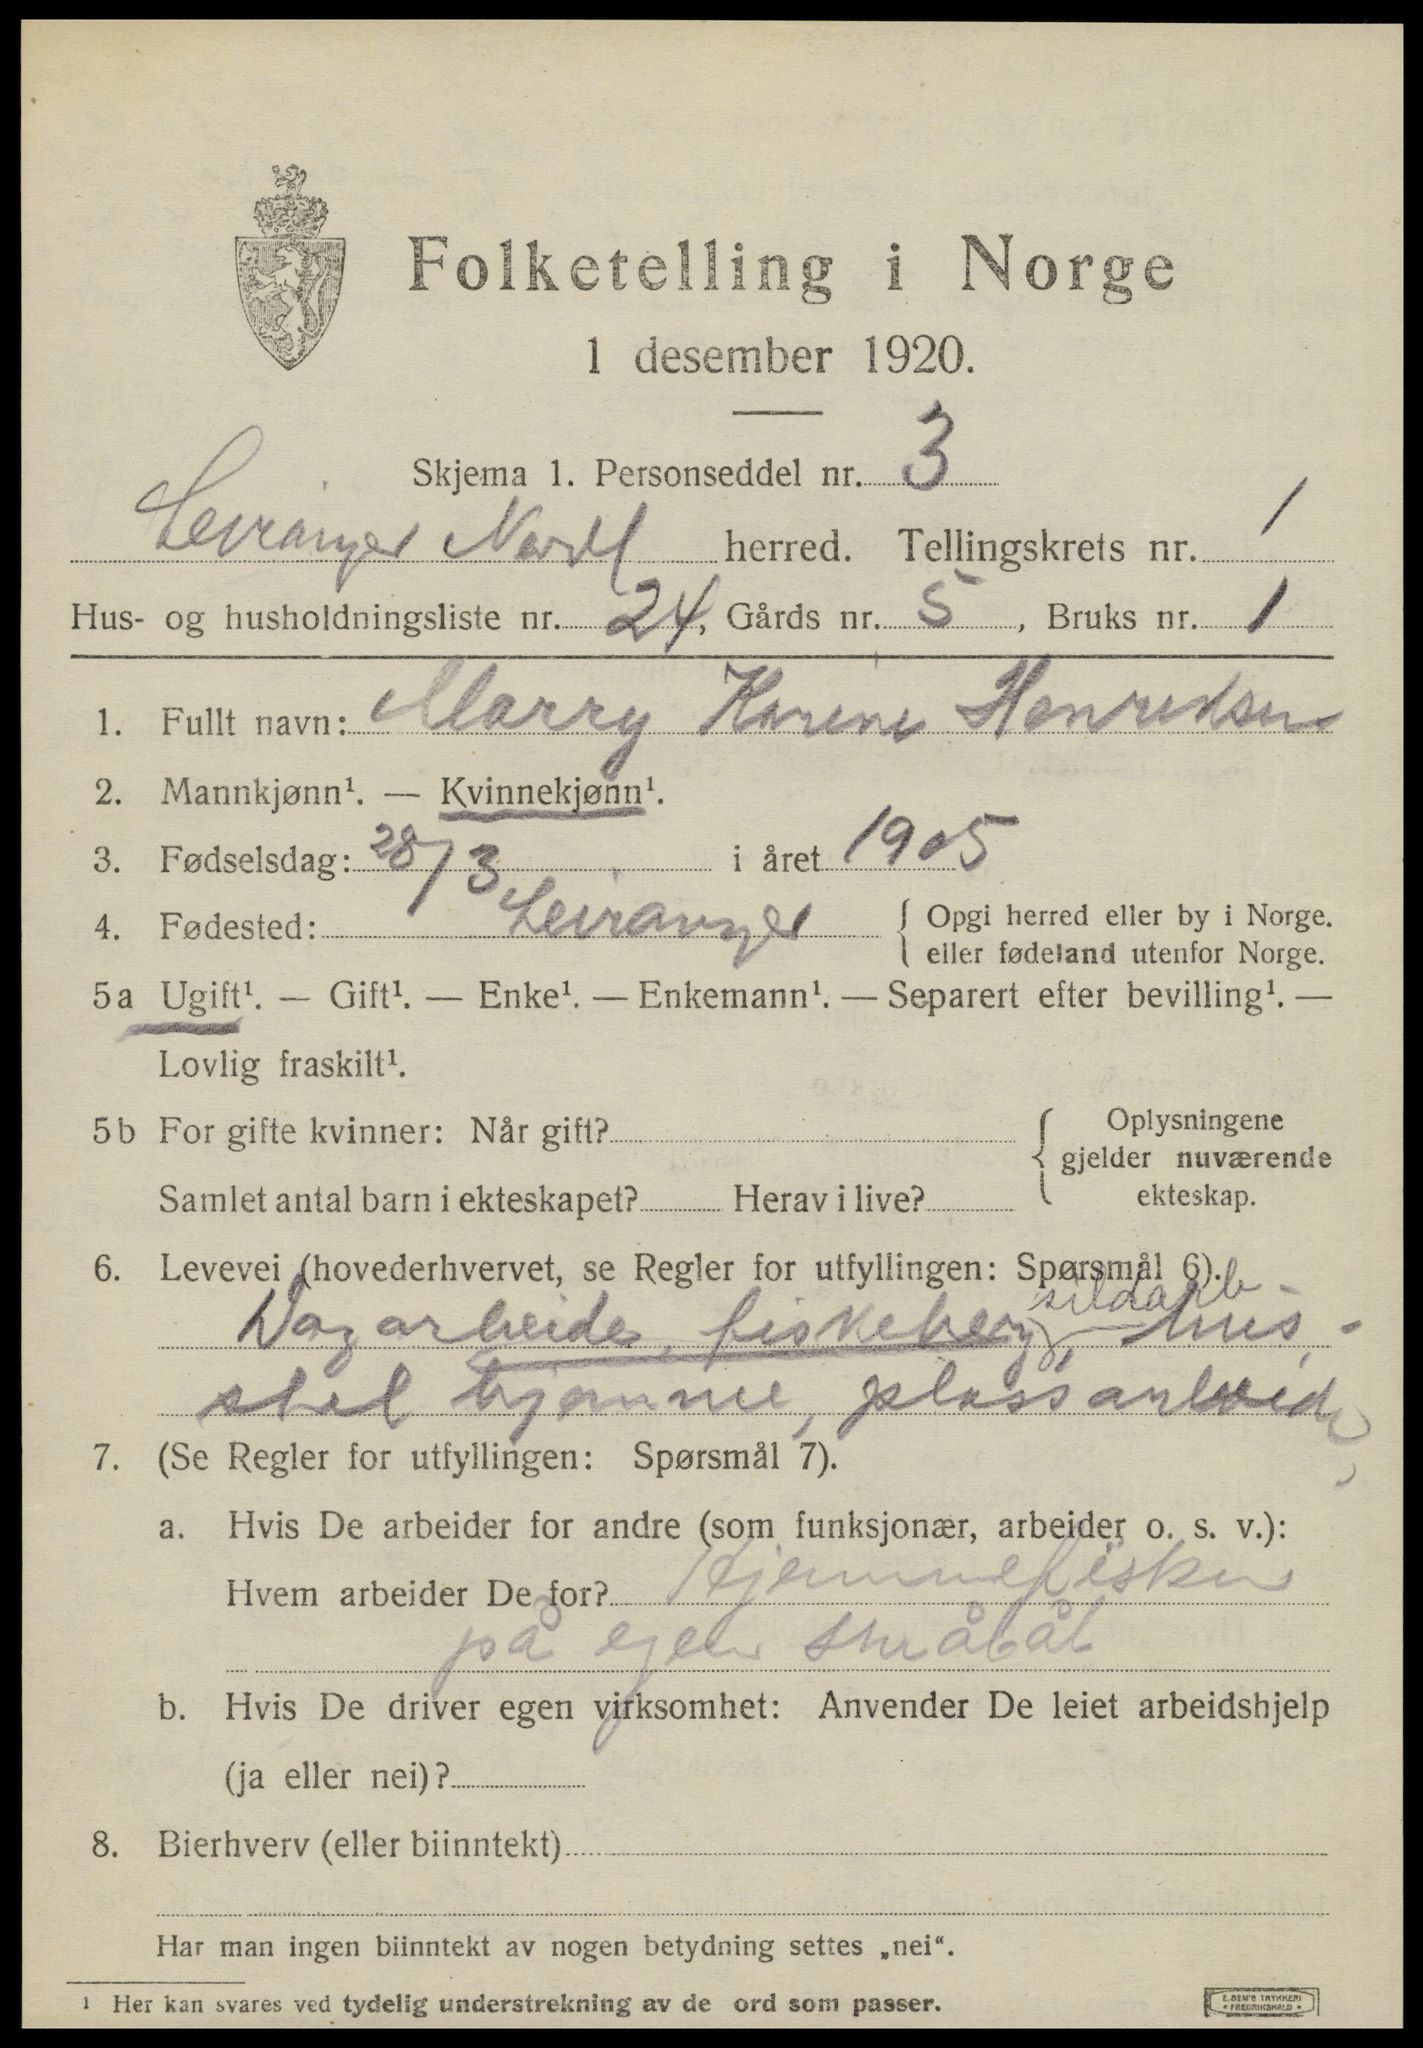 Folketelling i Norge
1 desember 1920.
Skjema 1. Personseddel nr. 3
Leiranger Nordl herred. Tellingskrets nr. 1
Hus- og husholdningsliste nr. 24, Gårds nr. 5, Bruks nr. 1
1. Fullt navn: Marry Karine Henriksen
2. Mannkjønn¹. — Kvinnekjønn¹.
3. Fødselsdag: 28/3 i året 1905
4. Fødested: Leiranger { Opgi herred eller by i Norge.
eller fødeland utenfor Norge.
5a Ugift¹. — Gift¹. — Enke¹. — Enkemann¹. — Separert efter bevilling¹. —
Lovlig fraskilt¹.
5b For gifte kvinner: Når gift? { Oplysningene
gjelder nuværende
Samlet antal barn i ekteskapet? Herav i live? ekteskap.
6. Levevei (hovederhvervet, se Regler for utfyllingen: Spørsmål 6).
sildarb
Dagarbeide, fiskeberg, hus-
stel hjemme, plassarbeide
7. (Se Regler for utfyllingen: Spørsmål 7).
a. Hvis De arbeider for andre (som funksjonær, arbeider o. s. v.):
Hvem arbeider De for? Hjemmefisker
på egen småbåt
b. Hvis De driver egen virksomhet: Anvender De leiet arbeidshjelp
(ja eller nei)?
8. Bierhverv (eller biinntekt)
Har man ingen biinntekt av nogen betydning settes „nei“.
¹ Her kan svares ved tydelig understrekning av de ord som passer.
E. SEM'S TRYKKERI
• FREDRIKSHALD •